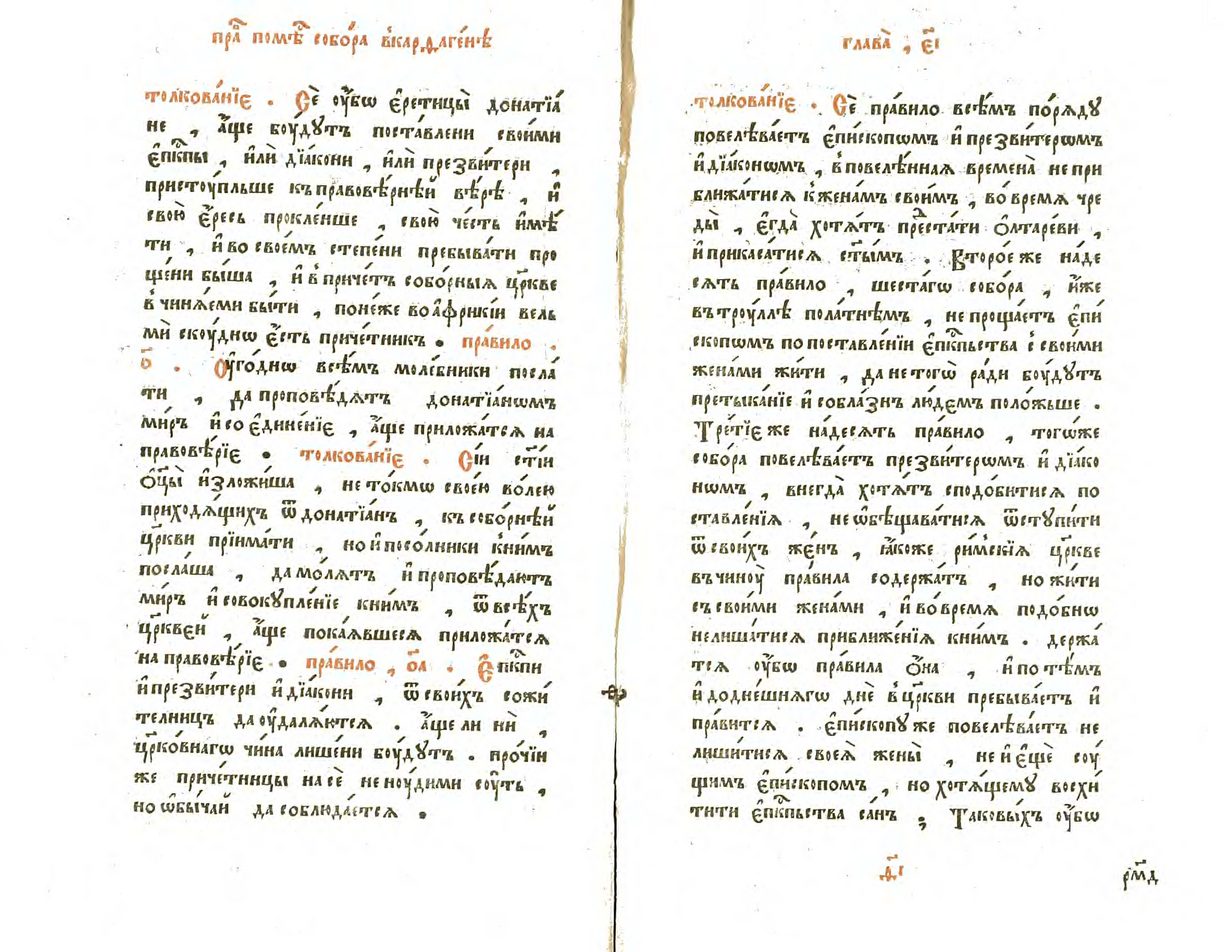 пра҇ помѣ҇ собо́ра в̾карѳаге́нѣ
толкова́нїе . Сѐ ᲂу҆́бѡ є҆ретицы̀ донатїа́
не , а҆́ще бꙋ́дꙋтъ поста́влени свои́ми
є҆пⷭ҇кпы , и҆лѝ дїа́кони , и҆лѝ презви́тери ,
пристоу́пльше къ правовѣ́рнѣй вѣ́рѣ , и҆
свою̀ є҆́ресь прокле́нше , свою̀ че́сть и҆мѣ́
ти , и҆ во свое́мъ степе́ни пребыва́ти про
ще́ни бы́ша , и҆ в̾ приче́тъ собо́рныѧ цр҃кве
в̾чинѧ́еми бы́ти , поне́же во а҆фрикі́и вель
мѝ скоу́днѡ є҆́сть приче́тникъ . пра́вило .
о҃ . Оу҆го́днѡ всѣ́мъ моле́бники посла́
ти , да проповѣ́дѧтъ донатїа́нѡмъ
ми́ръ и҆ со є҆дине́нїе , а҆́ще прилѡжа́тсѧ на
правовѣ́рїе . толкова́нїе . Сі́и ст҃і́и
ѻ҆ц҃ы̀ и҆зложи́ша , не то́кмѡ свое́ю во́лею
приходѧ́щихъ ѿ донатїа́нъ , къ собо́рнѣй
цр҃кви прїима́ти , но и҆ посо́лники к̾ни́мъ
посла́ша , да мо́лѧтъ и҆ проповѣ́даютъ
ми́ръ и҆ совокꙋпле́нїе к̾ни́мъ , ѿ всѣ́хъ
цр҃кве́й , а҆́ще пока́ѧвшесѧ прилѡжа́тсѧ
на правовѣ́рїе . пра́вило , о҃а . Є҆пⷭ҇кпи
и҆ презви́тери и҆ дїа́кони , ѿ свои́хъ сожи́
телницъ да ᲂу҆далѧ́ютсѧ . а҆́ще ли нѝ ,
цр҃ко́внагѡ чи́на лише́ни бꙋ́дꙋтъ . про́чїи
же приче́тницы на сѐ не ноу́дими соу́ть ,
но ѡ҆бы́чай да соблюда́етсѧ .
глава̀ , є҃і
толкова́нїе . Сѐ пра́вило всѣ́мъ по́рѧдꙋ
повелѣва́етъ є҆пи́скопѡмъ и҆ презви́терѡмъ
и҆ дїа́конѡмъ , в̾ повелѣ́ннаѧ времена̀ не при
ближа́тисѧ к̾ жена́мъ свои́мъ , во вре́мѧ чре
ды̀ , є҆гда̀ хотѧ́тъ предста́ти ѻ҆лтаре́ви ,
и҆ прикаса́тисѧ ст҃ы́мъ . Второ́е же на́де
сѧть пра́вило , шеста́гѡ собо́ра , и҆́же
въ троу́ллѣ пола́тнѣмъ , не проща́етъ є҆пи́
скопѡмъ по поставле́нїи є҆пⷭ҇кпьства с̾ свои́ми
жена́ми жи́ти , да не тогѡ̀ ра́ди бꙋ́дꙋтъ
претыка́нїе и҆ собла́знъ лю́демъ поло́жьше .
Тре́тїе же на́десѧть пра́вило , тогѡ́же
собо́ра повелѣва́етъ презви́терѡмъ и҆ дїа́ко
нѡмъ , внегда̀ хотѧ́тъ сподо́битисѧ по
ставле́нїѧ , не ѡ҆бѣщава́тисѧ ѿступи́ти
ѿ свои́хъ же́нъ , ꙗ҆́коже ри́мскїѧ цр҃кве
въ чиноу̀ пра́вила содержа́тъ , но жи́ти
съ свои́ми жена́ми , и҆ во вре́мѧ подо́бнѡ
не лиша́тисѧ приближе́нїѧ к̾ни́мъ . держа́
тсѧ ᲂу҆́бѡ пра́вила ѻ҆́на , и҆ по тѣ́мъ
и҆ до дне́шнѧгѡ днѐ в̾ цр҃кви пребыва́етъ и҆
пра́витсѧ . є҆пи́скопꙋ же повелѣва́етъ не
лиши́тисѧ своеѧ̀ жены̀ , не и҆ є҆щѐ соу́
щимъ є҆пи́скопомъ , но хотѧ́щемꙋ восхи́
тити є҆пⷭ҇кпьства са́нъ ; Таковы́хъ ᲂу҆́бѡ
д҃і
рм҃д